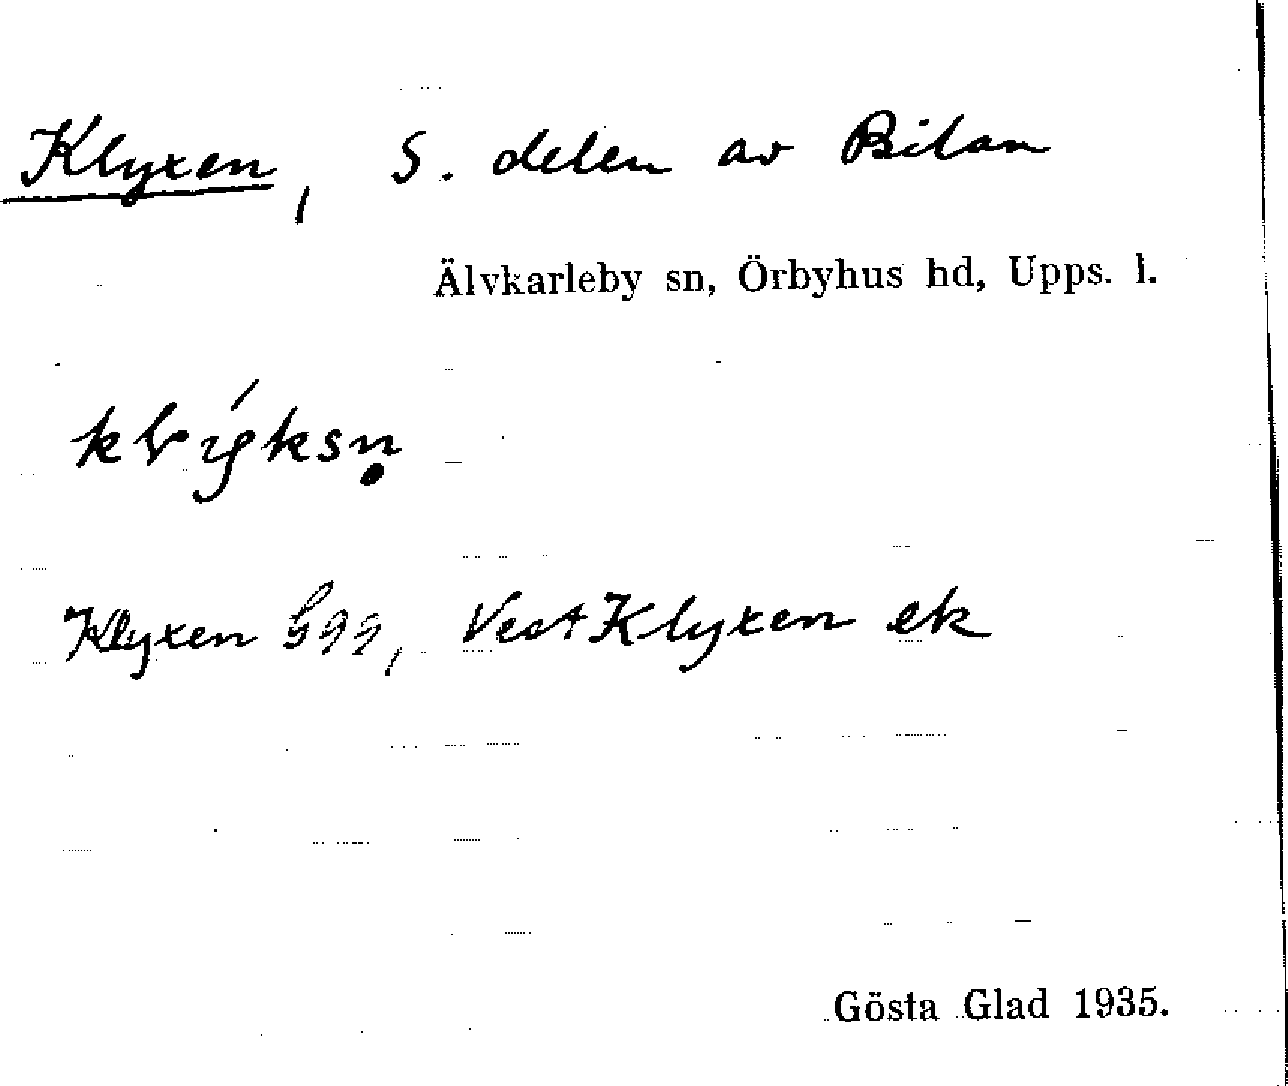 Klyxen, S. delen av Bilan
Älvkarleby sn, Örbyhus hd, Upps. l.
Klyxen G99, Vest Klyxen ek
Gösta Glad 1935.